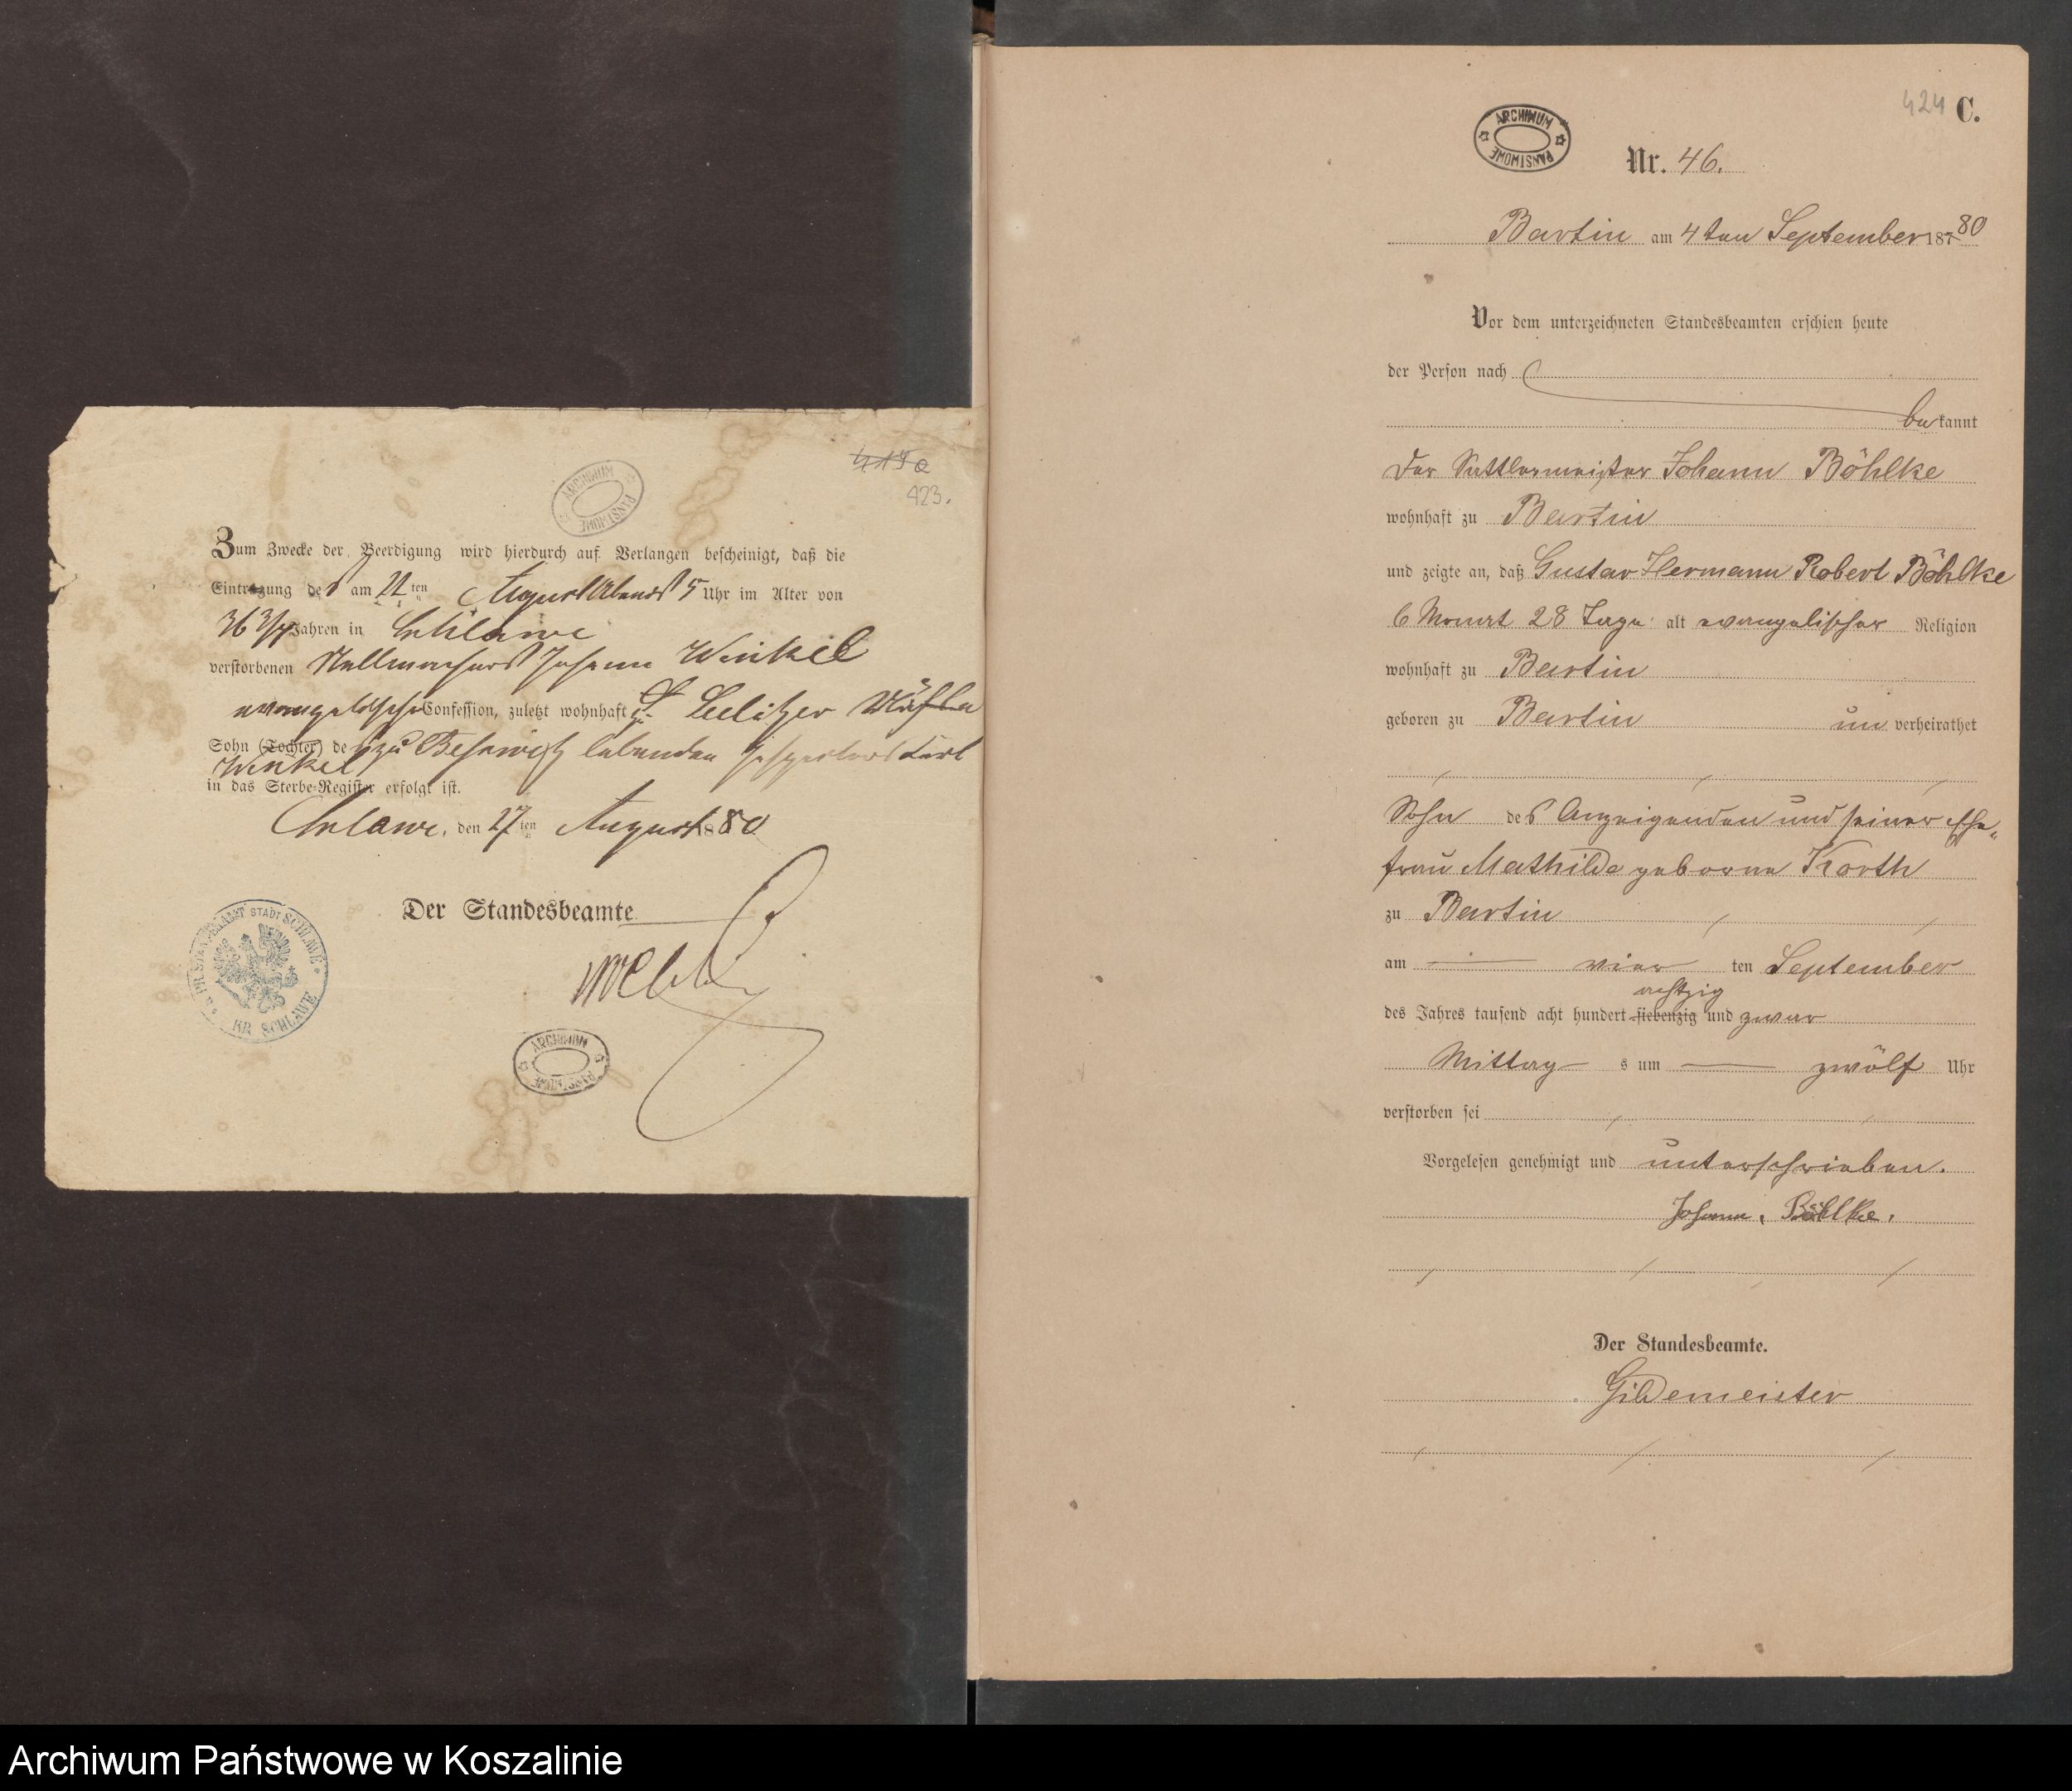 419a
423.
ARCHIWUM PAŃSTWOWE
Zum Zwecke der Beerdigung wird hierdurch auf Verlangen bescheinigt, daß die
Eintragung des am 22ten August Abends 5 Uhr im Alter von
36 3/4 Jahren in Schlawe
verstorbenen Stellmachers Johann Winkel
evangelische Confession, zuletzt wohnhaft
Sohn (Tochter) des zu lebenden Carl
Winkel
in das Sterbe-Register erfolgt ist.
Schlawe, den 27ten August 1880
Der Standesbeamte
K. PR. STANDESAMT STADT SCHLAWE
KR. SCHLAWE
ARCHIWUM PAŃSTWOWE
424 C.
ARCHIWUM PAŃSTWOWE
Nr. 46.
Bartin am 4ten September 18780
Vor dem unterzeichneten Standesbeamten erschien heute
der Person nach
bekannt
Der Sattlermeister Johann Böhlke
wohnhaft zu Bartin
und zeigte an, daß Gustav Hermann Robert Böhlke
6 Monat 28 Tage alt evangelischer Religion
wohnhaft zu Bartin
geboren zu Bartin unverheirathet
Sohn des Anzeigenden und seiner Ehe-
frau Mathilde geborne Korth
zu Bartin
am vierten September
achtzig
des Jahres tausend acht hundert siebenzig und zwar
Mittags um zwölf Uhr
verstorben sei
Vorgelesen genehmigt und unterschrieben.
Johann. Böhlke.
Der Standesbeamte.
Gildemeister
Archiwum Państwowe w Koszalinie